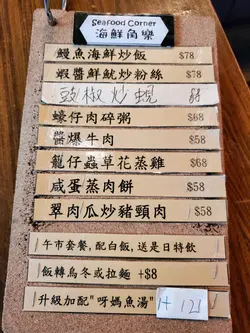 Seafood Corner
海鮮角樂
鰻魚海鮮炒飯 $78
蝦醬鮮魷炒粉絲 $78
豉椒炒蜆 88
蠔仔肉碎粥 $68
醬爆牛肉 $58
籠仔蟲草花蒸雞 $68
咸蛋蒸肉餅 $58
翠肉瓜炒豬頸肉 $58
午市套餐, 配白飯, 送是日特飲
飯轉烏冬或拉麵 +$8
升級加配"呀媽魚湯"